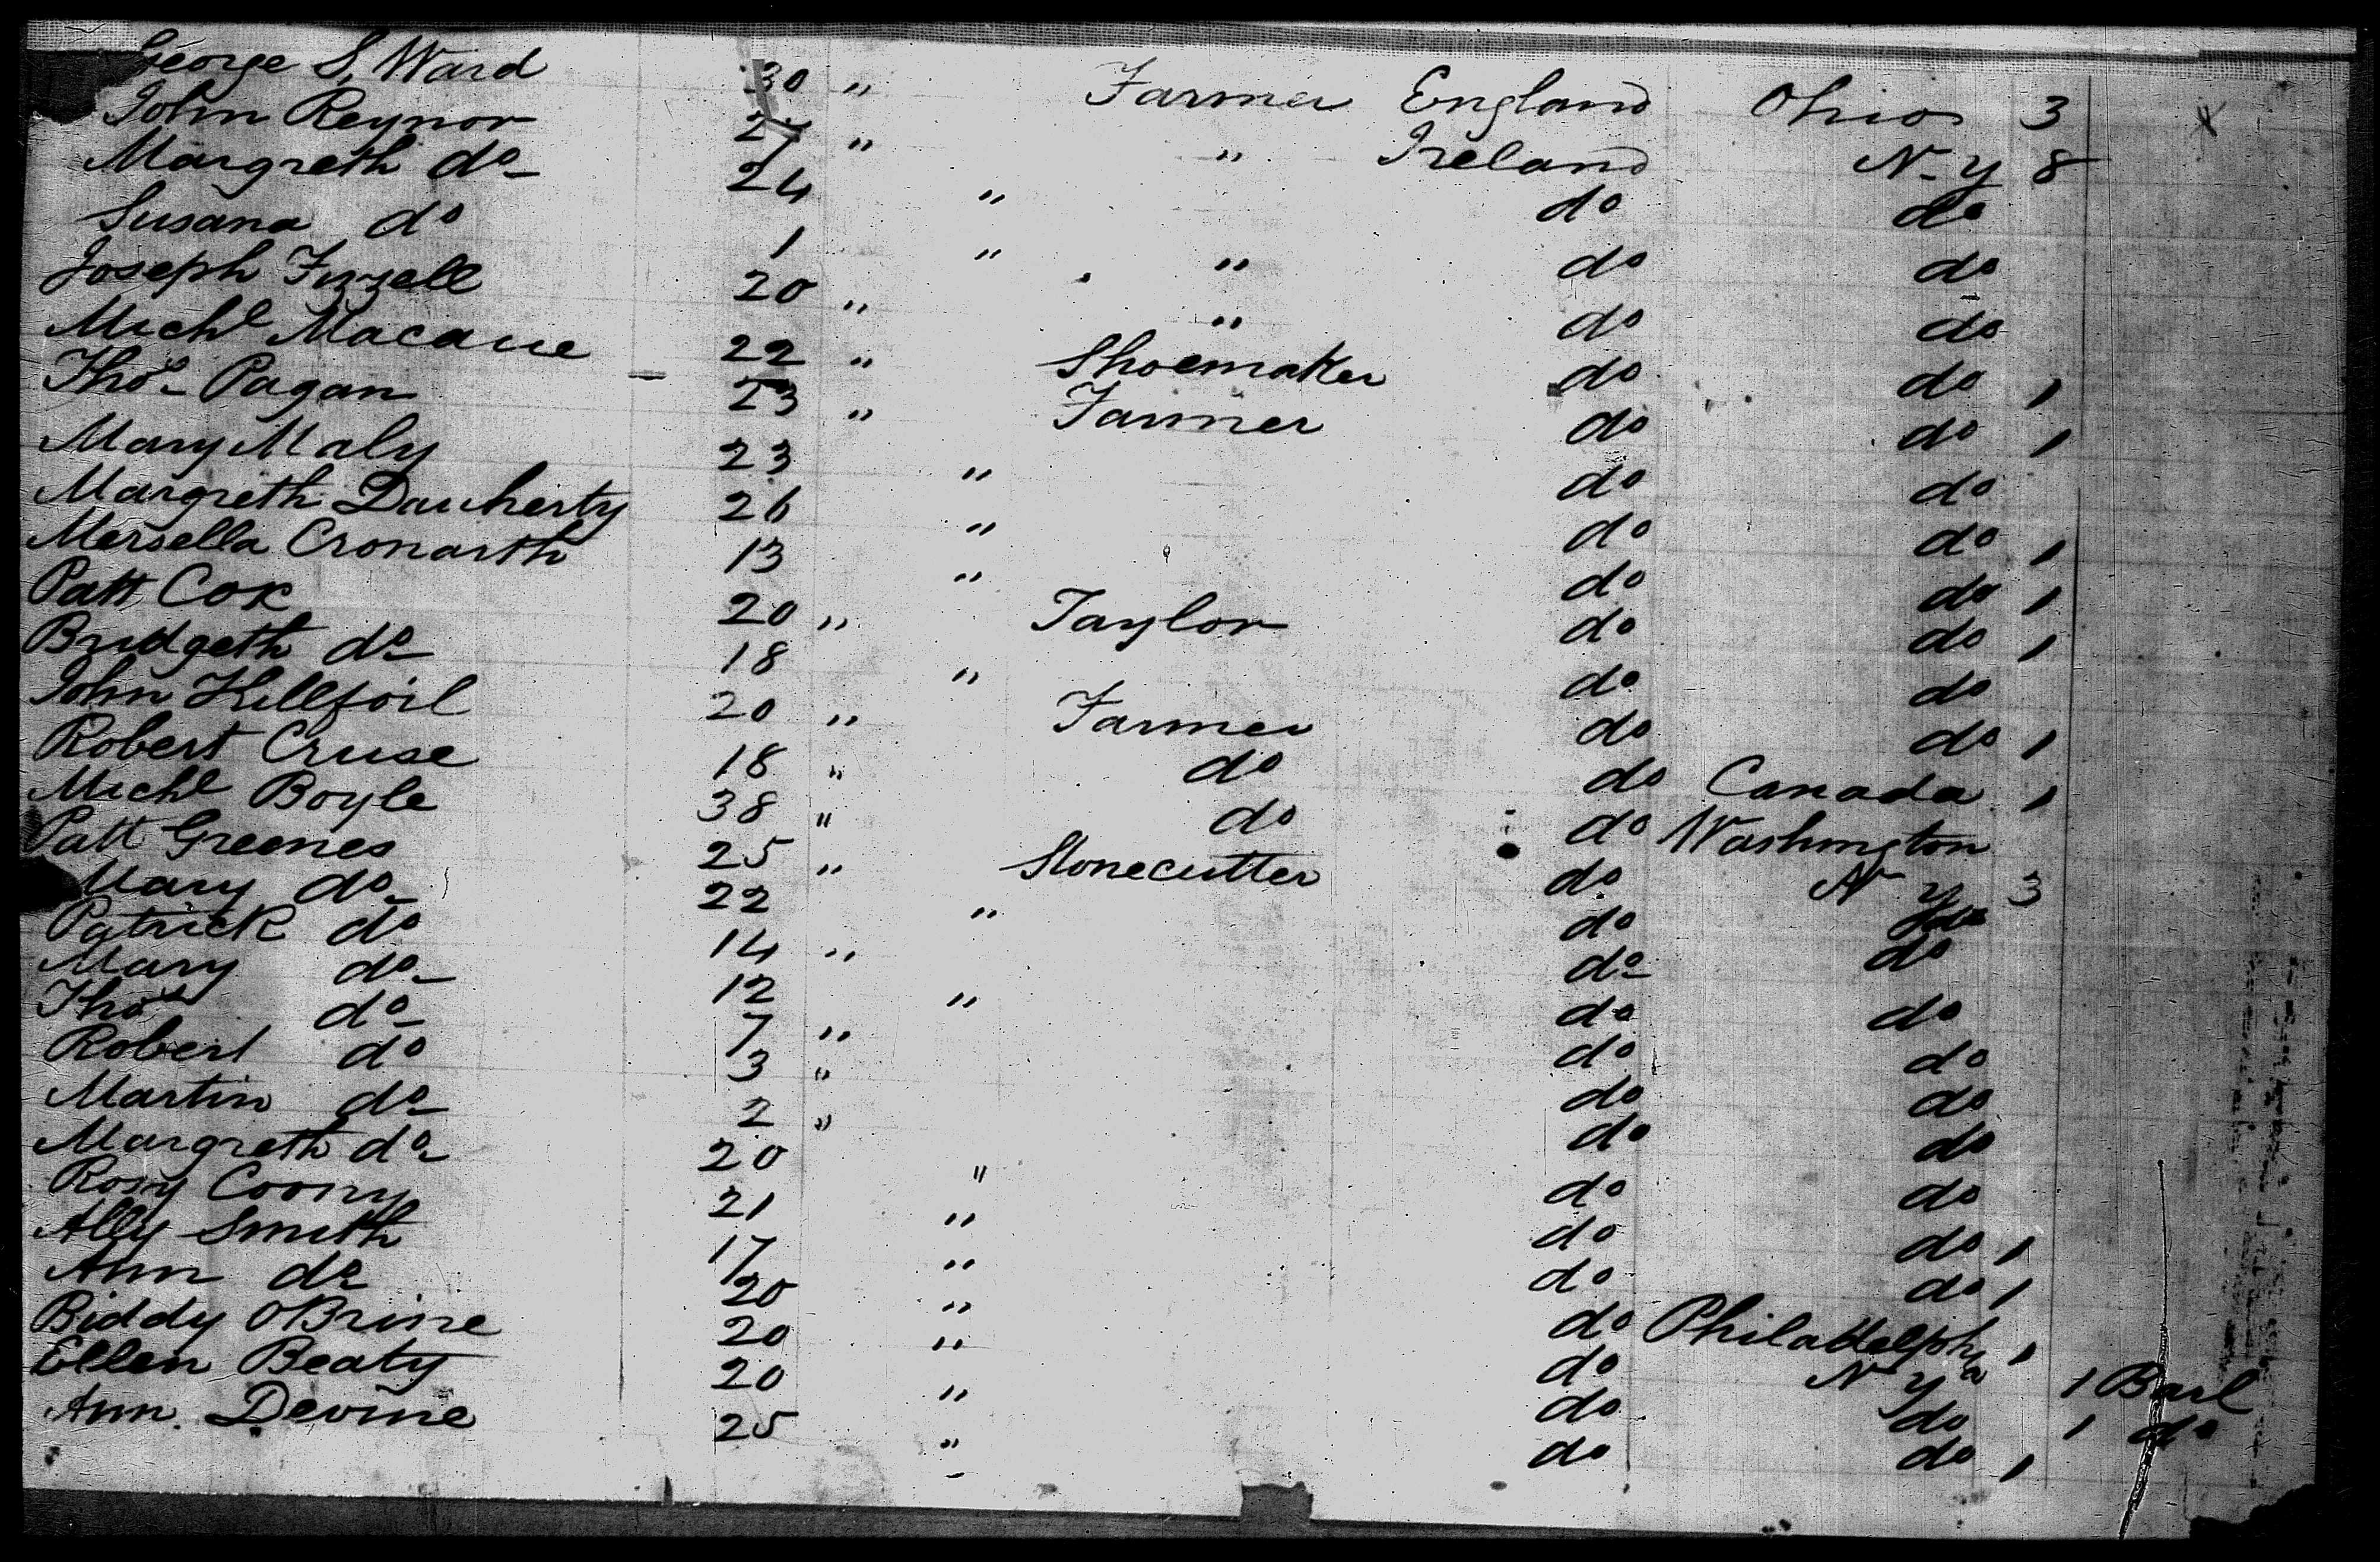 George S. Ward 30 " Farmer England Ohio 3
John Reynor 27 " " Ireland N.y 8
Margreth do 24 " do do
Susana do 1 " " do do
Joseph Fizzell 20 " " do do
Michl Macaue 22 " Shoemaker do do 1
Thos Pagan 23 " Farmer do do 1
Mary Maly 23 " do do
Margreth Dauherty 26 " do do 1
Mersella Cronarth 13 " do do 1
Patt Cox 20 " Taylor do do 1
Bridgeth do 18 " do do
John Killfoil 20 " Farmer do do 1
Robert Cruse 18 " do do Canada 1
Michl Boyle 38 " do do Washington
Patt Greenes 25 " Stonecutter do N y 3
Mary do 22 " do do
Patrick do 14 " do do
Mary do 12 " do do
Thos do 7 " do do
Robert do 3 " do do
Martin do 2 " do do
Margreth do 20 " do do
Rosy Coony 21 " do do 1
Ally Smith 17 " do do 1
Ann do 20 " do Philadelphia 1
Biddy OBrine 20 " do N y 1 Barl
Ellen Beaty 20 " do do 1 do
Ann Devine 25 " do do 1